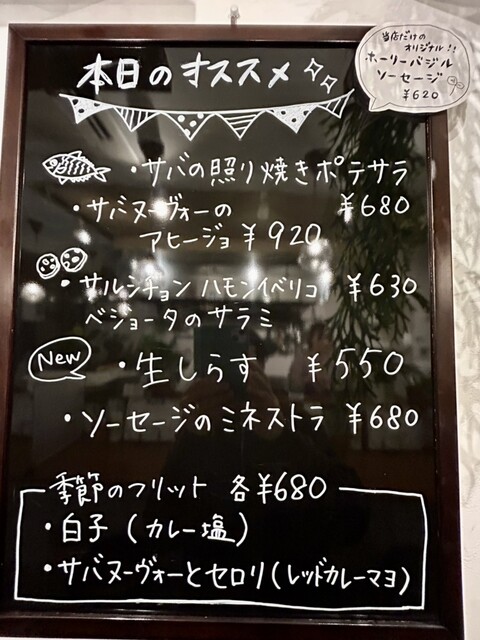 本日のオススメ
当店だけの
オリジナル!!
ホーリーバジル
ソーセージ
¥620
・サバの照り焼きポテサラ
¥680
・サバヌーヴォーの
アヒージョ ¥920
・サルシチョン ハモンイベリコ ¥630
ベジョータのサラミ
New
・生しらす ¥550
・ソーセージのミネストラ ¥680
季節のフリット 各¥680
・白子(カレー塩)
・サバヌーヴォーとセロリ(レッドカレーマヨ)